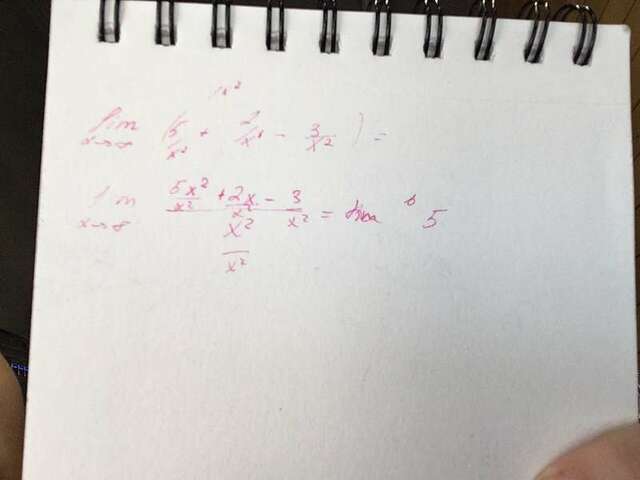 lim x→∞ (5/x² + 2/x² - 3/x²) =
lim x→∞ (5x²/x² + 2x/x² - 3/x²)/(x²/x²) = 5